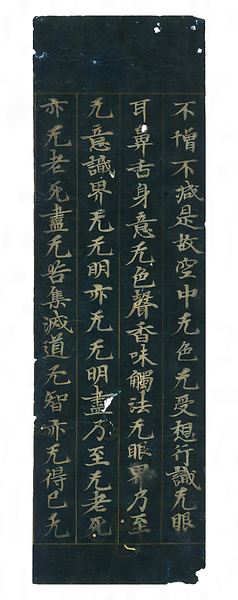 不憎不減是故空中无色无受想行識无眼
耳鼻舌身意无色聲香味觸法无眼界乃至
无意識界无无明亦无无明盡乃至无老死
亦无老死盡无苦集滅道无智亦无得已无